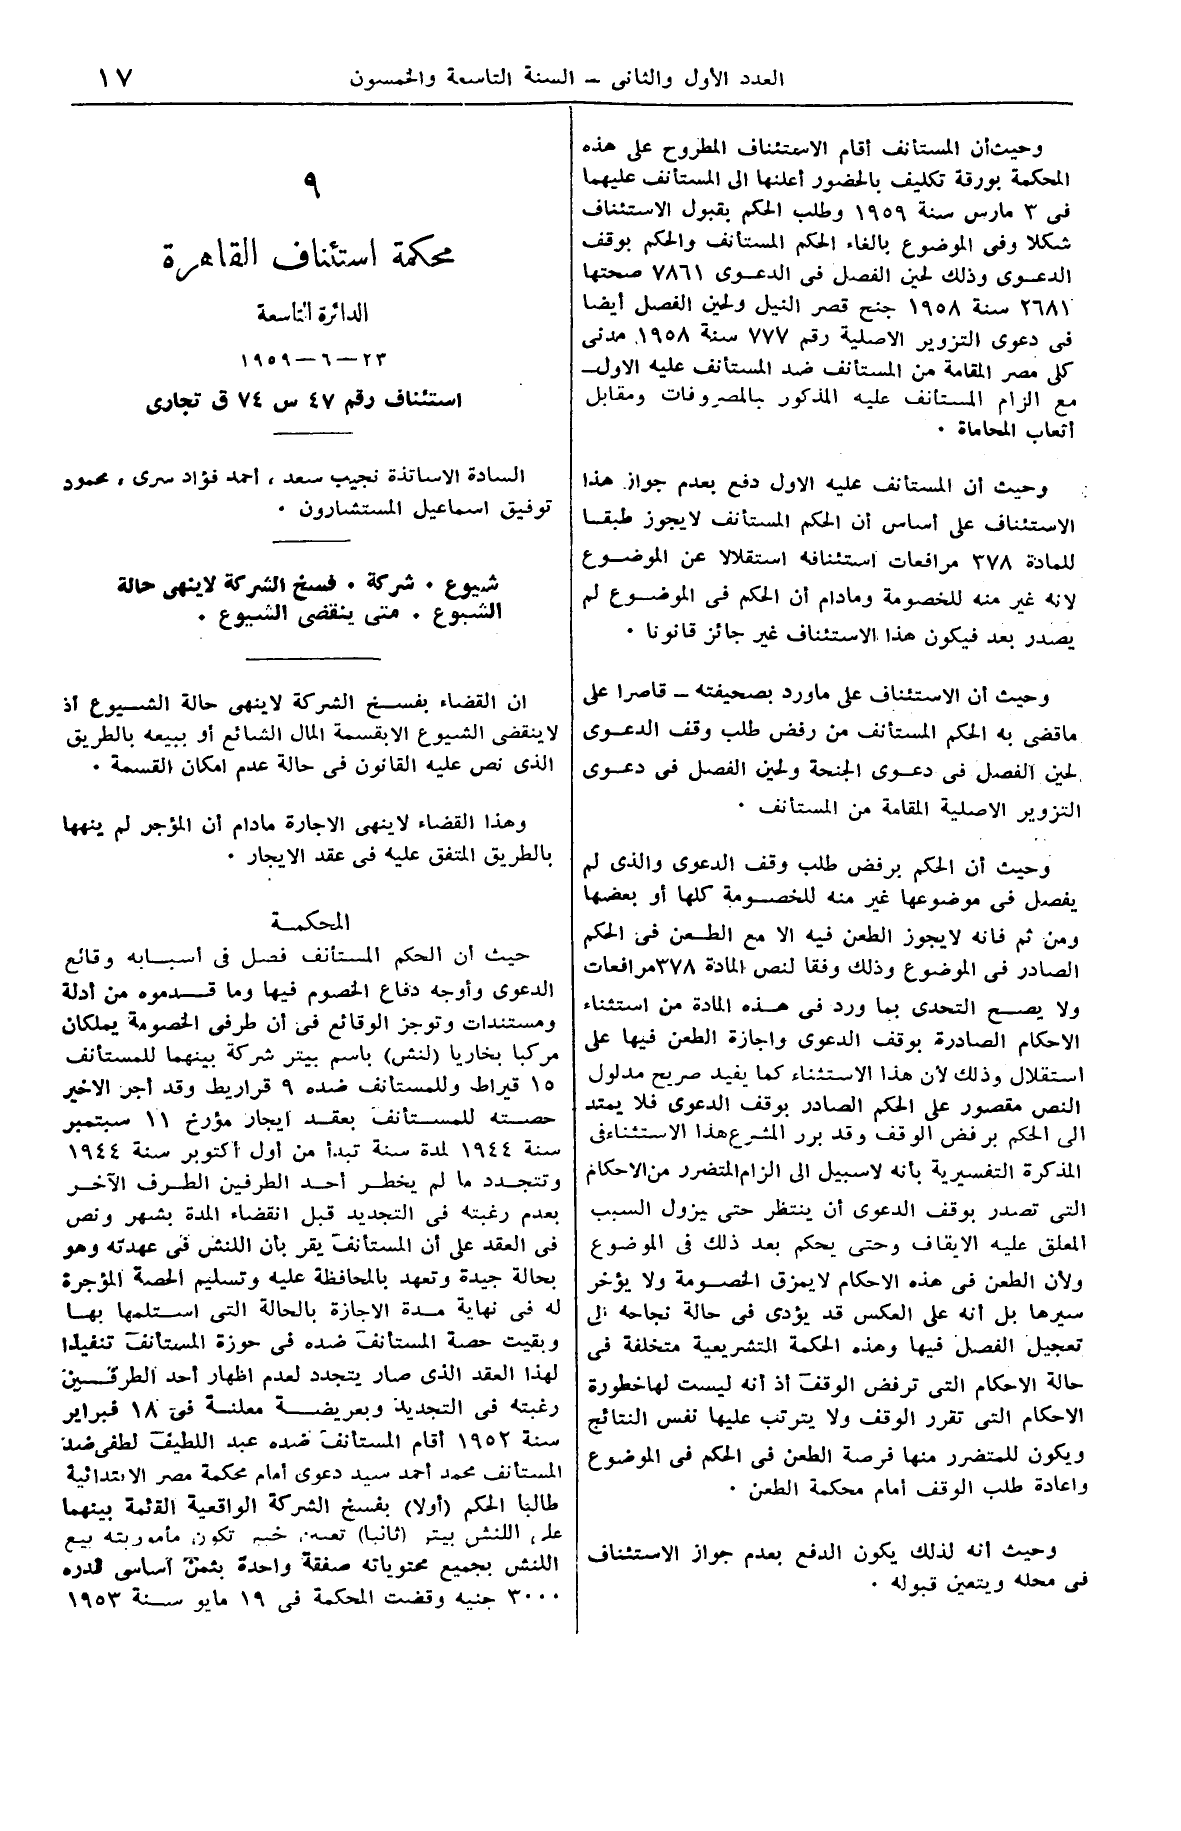 العدد الأول والثانى – السنة التاسعة والخمسون
١٧
وحيث أن المستأنف أقام الاستئناف المطروح على هذه
المحكمة بورقة تكليف بالحضور أعلنها الى المستأنف عليهما
فى ٣ مارس سنة ١٩٥٩ وطلب الحكم بقبول الاستئناف
شكلا وفى الموضوع بالغاء الحكم المستأنف والحكم بوقف
الدعوى وذلك لحين الفصل فى الدعوى ٧٨٦١ صحتها
٢٦٨١ سنة ١٩٥٨ جنح قصر النيل ولحين الفصل أيضا
فى دعوى التزوير الاصلية رقم ٧٧٧ سنة ١٩٥٨ مدنى
كلى مصر المقامة من المستأنف ضد المستأنف عليه الاول –
مع الزام المستأنف عليه المذكور بالمصروفات ومقابل
أتعاب المحاماة .
وحيث أن المستأنف عليه الاول دفع بعدم جواز هذا
الاستئناف على أساس أن الحكم المستأنف لايجوز طبقا
للمادة ٣٧٨ مرافعات استئنافه استقلالا عن الموضوع
لانه غير منه للخصومة ومادام أن الحكم فى الموضوع لم
يصدر بعد فيكون هذا الاستئناف غير جائز قانونا .
وحيث أن الاستئناف على ماورد بصحيفته – قاصرا على
ماقضى به الحكم المستأنف من رفض طلب وقف الدعوى
لحين الفصل فى دعوى الجنحة ولحين الفصل فى دعوى
التزوير الاصلية المقامة من المستأنف .
وحيث أن الحكم برفض طلب وقف الدعوى والذى لم
يفصل فى موضوعها غير منه للخصومة كلها أو بعضها
ومن ثم فانه لايجوز الطعن فيه الا مع الطعن فى الحكم
الصادر فى الموضوع وذلك وفقا لنص المادة ٣٧٨ مرافعات
ولا يصح التحدى بما ورد فى هذه المادة من استثناء
الاحكام الصادرة بوقف الدعوى واجازة الطعن فيها على
استقلال وذلك لأن هذا الاستثناء كما يفيد صريح مدلول
النص مقصور على الحكم الصادر بوقف الدعوى فلا يمتد
الى الحكم برفض الوقف وقد برر المشرع هذا الاستثناء فى
المذكرة التفسيرية بأنه لاسبيل الى الزام المتضرر من الاحكام
التى تصدر بوقف الدعوى أن ينتظر حتى يزول السبب
المعلق عليه الايقاف وحتى يحكم بعد ذلك فى الموضوع
ولأن الطعن فى هذه الاحكام لايمزق الخصومة ولا يؤخر
سيرها بل أنه على العكس قد يؤدى فى حالة نجاحه الى
تعجيل الفصل فيها وهذه الحكمة التشريعية متخلفة فى
حالة الاحكام التى ترفض الوقف أذ أنه ليست لها خطورة
الاحكام التى تقرر الوقف ولا يترتب عليها نفس النتائج
ويكون للمتضرر منها فرصة الطعن فى الحكم فى الموضوع
واعادة طلب الوقف أمام محكمة الطعن .
وحيث أنه لذلك يكون الدفع بعدم جواز الاستئناف
فى محله ويتعين قبوله .
٩
محكمة استئناف القاهرة
الدائرة التاسعة
٢٣–٦–١٩٥٩
استئناف رقم ٤٧ س ٧٤ ق تجارى
السادة الاساتذة نجيب سعد ، أحمد فؤاد سرى ، محمود
توفيق اسماعيل المستشارون .
شيوع . شركة . فسخ الشركة لاينهى حالة
الشيوع . متى ينقضى الشيوع .
ان القضاء بفسخ الشركة لاينهى حالة الشيوع أذ
لاينقضى الشيوع الابقسمة المال الشائع أو ببيعه بالطريق
الذى نص عليه القانون فى حالة عدم امكان القسمة .
وهذا القضاء لاينهى الاجارة مادام أن المؤجر لم ينهها
بالطريق المتفق عليه فى عقد الايجار .
المحكمة
حيث أن الحكم المستأنف فصل فى أسبابه وقائع
الدعوى وأوجه دفاع الخصوم فيها وما قدموه من أدلة
ومستندات وتوجز الوقائع فى أن طرفى الخصومة يملكان
مركبا بخاريا (لنش) باسم بيتر شركة بينهما للمستأنف
١٥ قيراط وللمستأنف ضده ٩ قراريط وقد أجر الاخير
حصته للمستأنف بعقد ايجار مؤرخ ١١ سبتمبر
سنة ١٩٤٤ لمدة سنة تبدأ من أول أكتوبر سنة ١٩٤٤
وتتجدد ما لم يخطر أحد الطرفين الطرف الآخر
بعدم رغبته فى التجديد قبل انقضاء المدة بشهر ونص
فى العقد على أن المستأنف يقر بأن اللنش فى عهدته وهو
بحالة جيدة وتعهد بالمحافظة عليه وتسليم الحصة المؤجرة
له فى نهاية مدة الاجازة بالحالة التى استلمها بها
وبقيت حصة المستأنف ضده فى حوزة المستأنف تنفيذا
لهذا العقد الذى صار يتجدد لعدم اظهار أحد الطرفين
رغبته فى التجديد وبعريضة معلنة فى ١٨ فبراير
سنة ١٩٥٢ أقام المستأنف ضده عبد اللطيف لطفى ضد
المستأنف محمد أحمد سيد دعوى أمام محكمة مصر الابتدائية
طالبا الحكم (أولا) بفسخ الشركة الواقعية القائمة بينهما
على اللنش بيتر (ثانيا) تعيين خبير تكون مأموريته بيع
اللنش بجميع محتوياته صفقة واحدة بثمن أساسى قدره
٣٠٠٠ جنيه وقضت المحكمة فى ١٩ مايو سنة ١٩٥٣